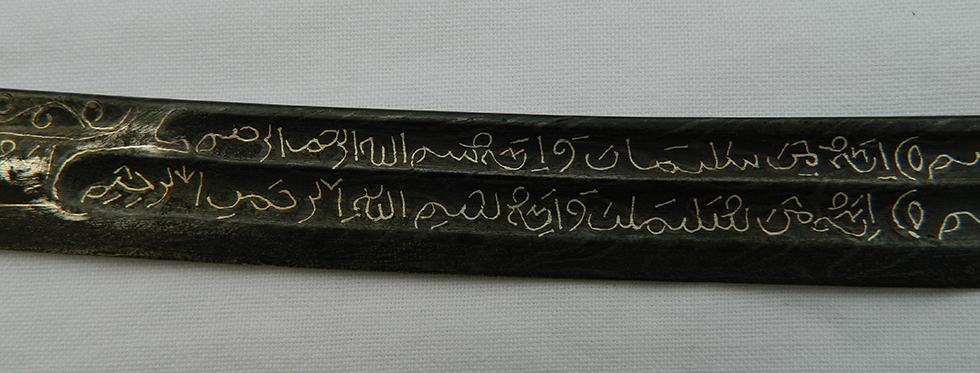 م) إنه من سليمان وإنه بسم الله الرحمن الرحيم
م) إنه من سليمان وإنه بسم الله الرحمن الرحيم